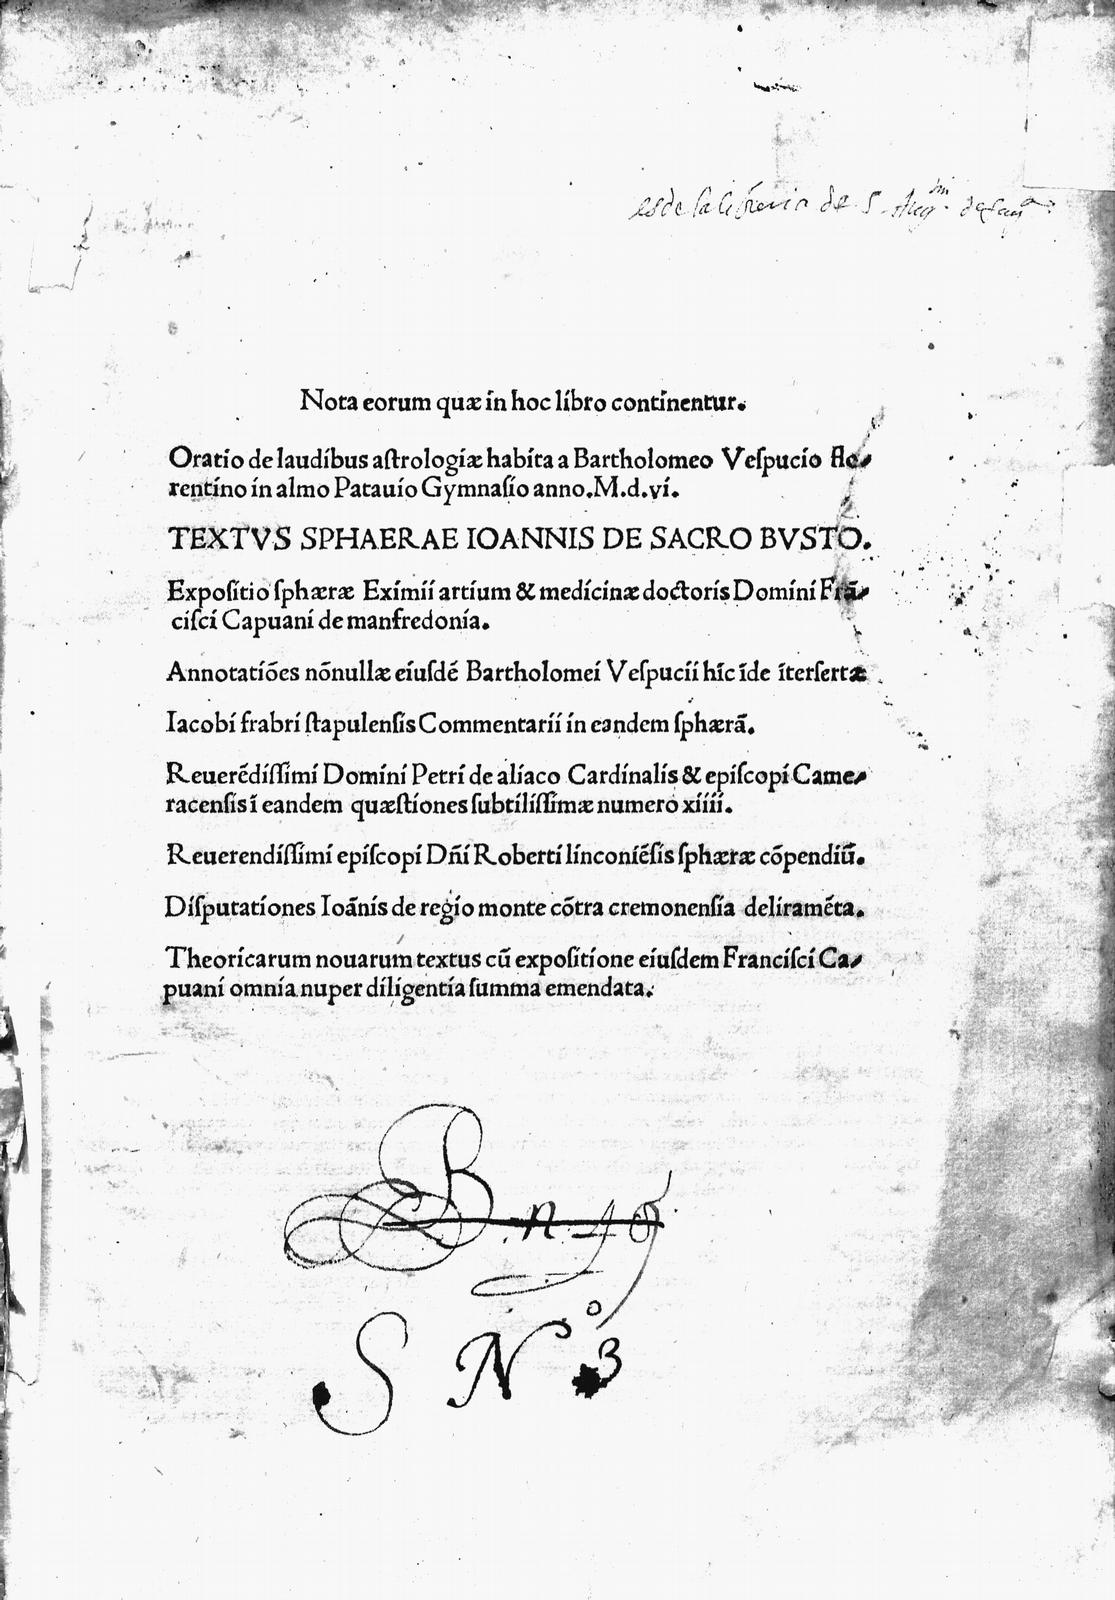 es de la libreria de S. Augᵐ.
Nota eorum quæ in hoc libro continentur.
Oratio de laudibus aſtrologiæ habita a Bartholomeo Veſpucio flo-
rentino in almo Patauio Gymnaſio anno.M.d.vi.
TEXTVS SPHAERAE IOANNIS DE SACRO BVSTO.
Expoſitio ſphæræ Eximii artium & medicinæ doctoris Domini Frā-
ciſci Capuani de manfredonia.
Annotatiōes nōnullæ eiuſdē Bartholomei Veſpucii hic īde īterſertæ
Iacobi frabri ſtapulenſis Commentarii in eandem ſphærā.
Reuerēdiſſimi Domini Petri de aliaco Cardinalis & epiſcopi Came-
racenſis ī eandem quæſtiones ſubtiliſſimæ numero xiiii.
Reuerendiſſimi epiſcopi Dn̄i Roberti linconiēſis ſphæræ cōpendiū.
Diſputationes Ioānis de regio monte cōtra cremonenſia deliramēta.
Theoricarum nouarum textus cū expoſitione eiuſdem Franciſci Ca-
puani omnia nuper diligentia ſumma emendata.
B. n. 49
S Nº 3